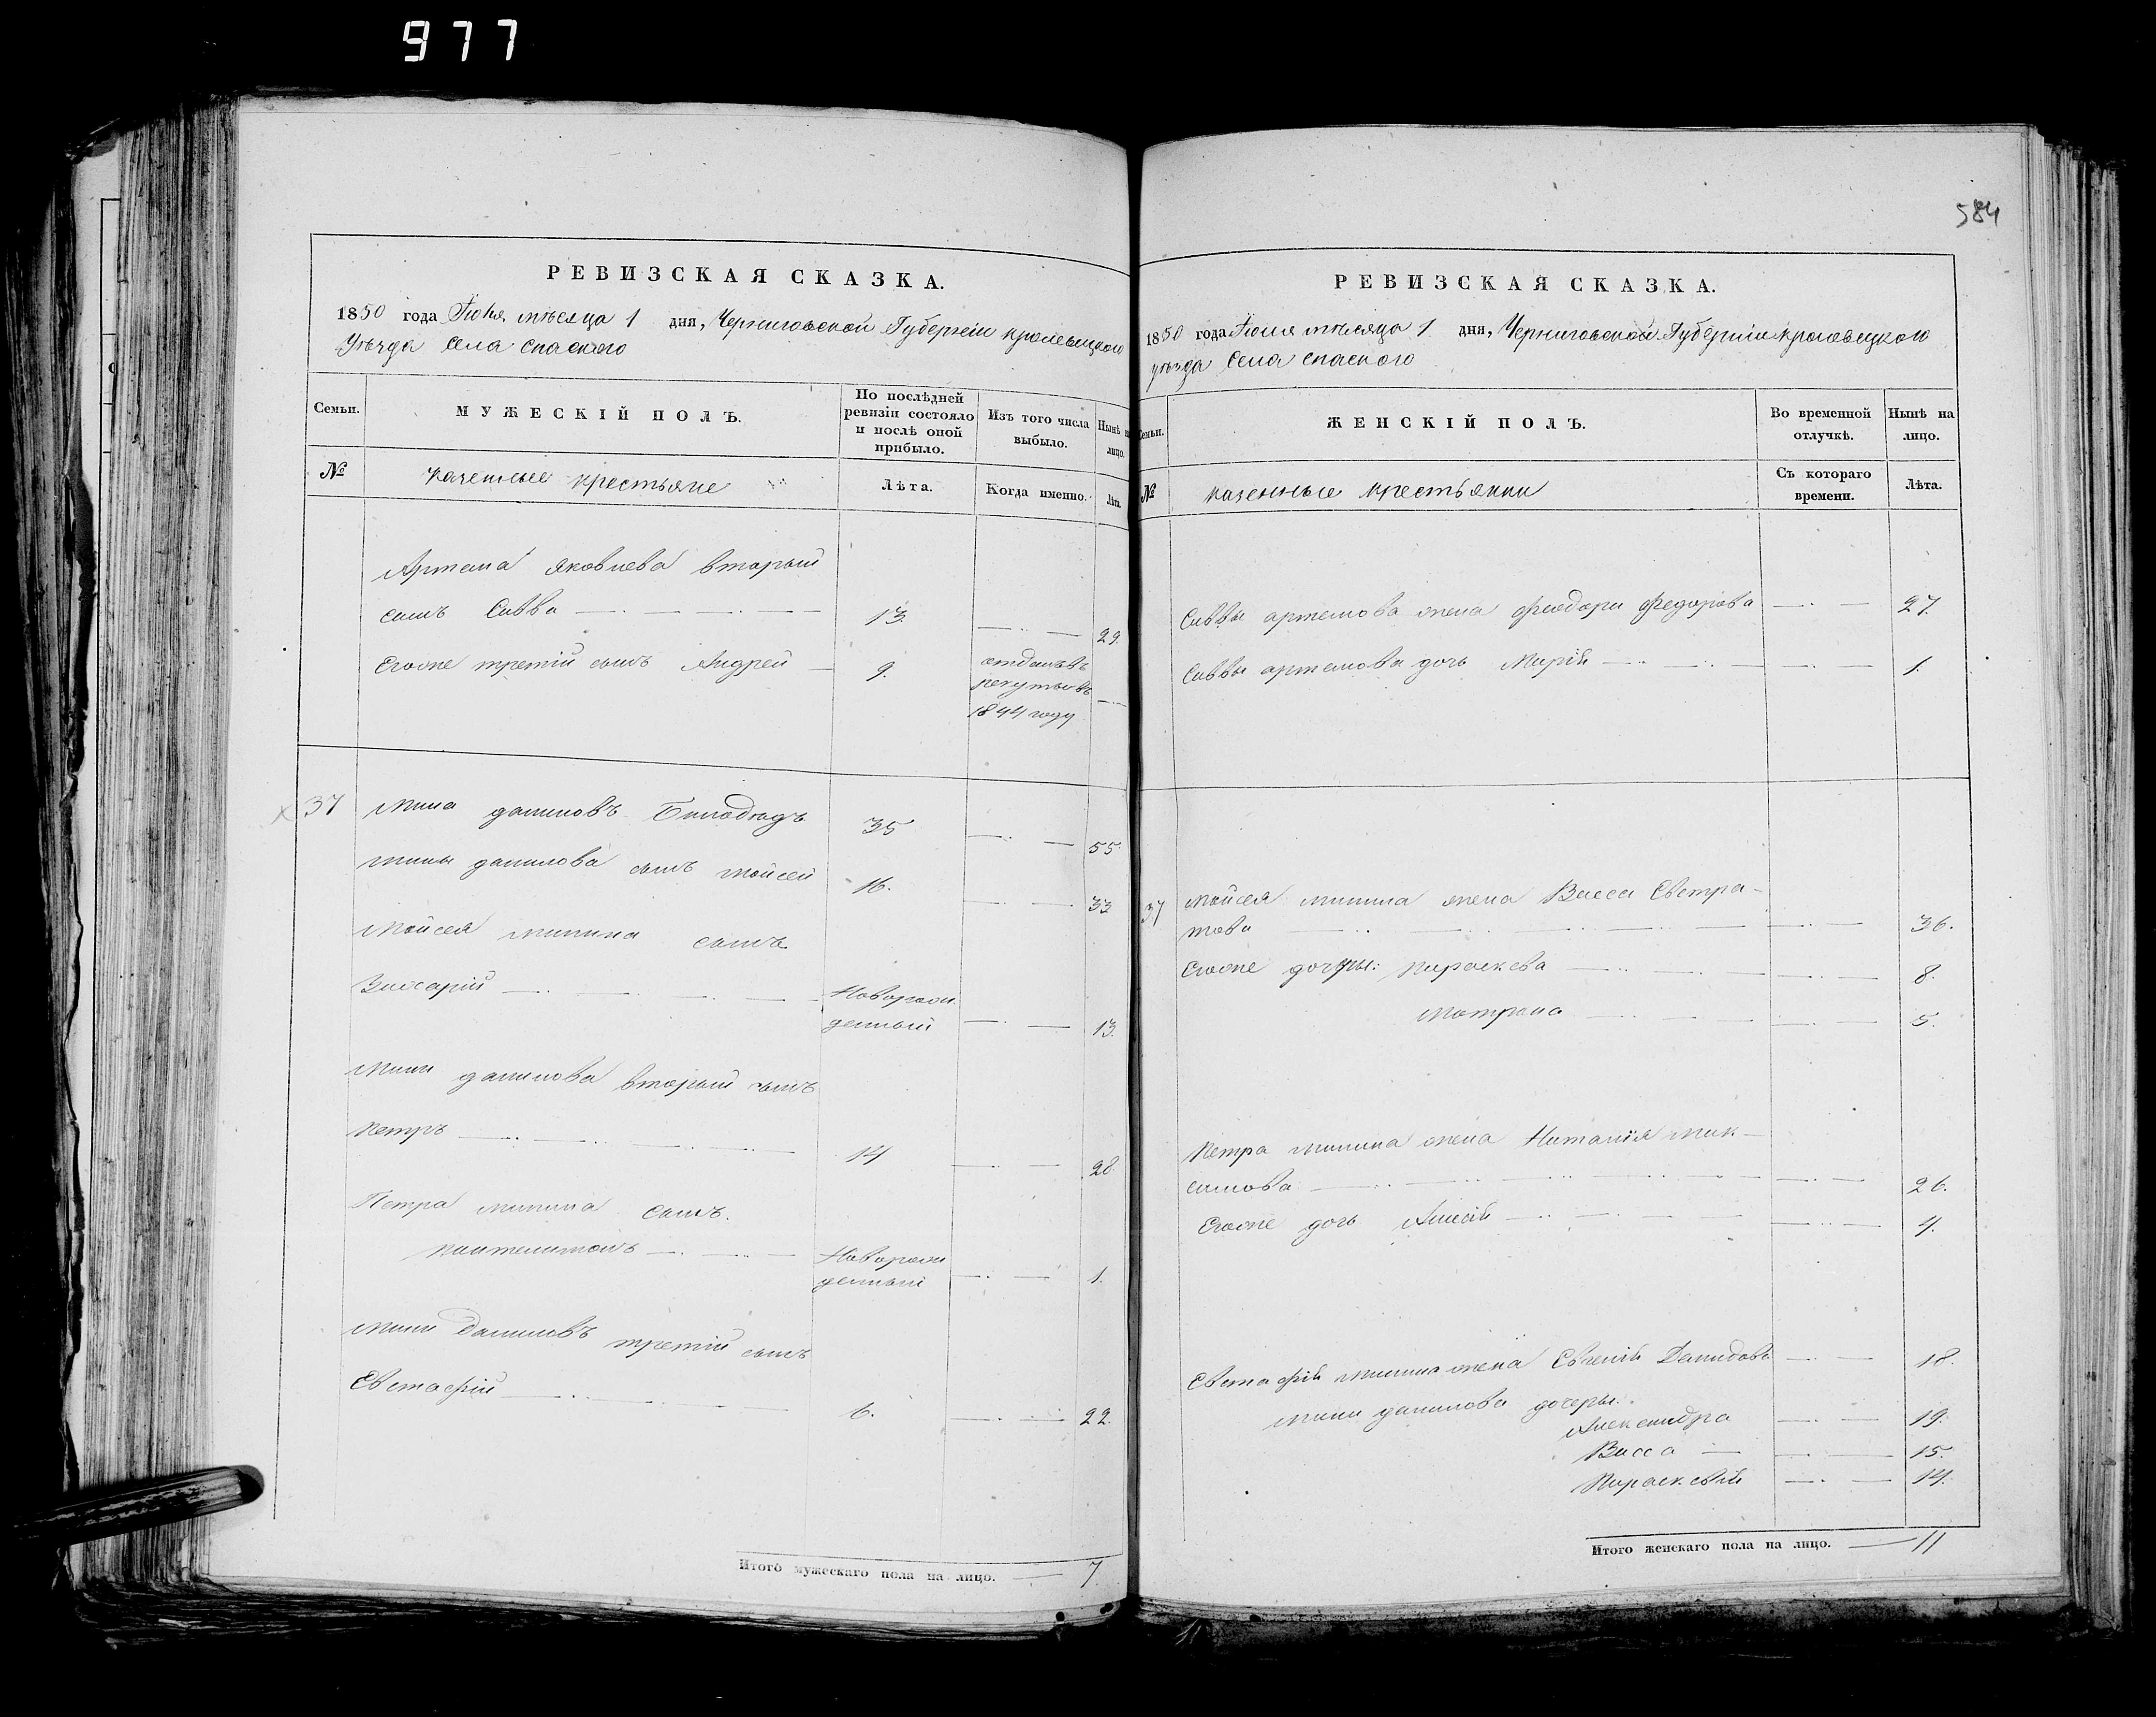 977
РЕВИЗСКАЯ СКАЗКА.
1850 года Іюня мѣсяца 1 дня, Черниговской Губерніи Кролевецкого
Уѣзда Села Спаского
Семьи.
МУЖЕСКІЙ ПОЛЪ.
По послѣдней
ревизіи состояло
и послѣ оной
прибыло.
Изъ того числа
выбыло.
Нынѣ на
лицо.
№
казенные крестьяне
Лѣта.
Когда именно.
Лѣта.
Артема Яковлева вторый
сынъ Савва 13. 29.
Егоже третій сынъ Андрей 9. отданъ въ
рекуты въ
1844 году
37 Мина даниловъ Билодѣдъ 35 55.
Мины данилова сынъ Мойсей 16. 33
Мойсея минина сынъ
Новорож
денный 13.
Мины данилова вторый сынъ
Петръ 14 28.
Петра минина сынъ
Пантелимонъ Новорож
денный 1.
Мины Даниловъ третій сынъ
Евстафій 6. 22.
Итого мужескаго пола на лицо. 7
584
РЕВИЗСКАЯ СКАЗКА.
1850 года Іюня мѣсяца 1 дня, Черниговской Губерніи Кролевецкого
уѣзда Села Спаского
Семьи.
ЖЕНСКІЙ ПОЛЪ.
Во временной
отлучкѣ.
Нынѣ на
лицо.
№
казенные крестьянки
Съ котораго
времени.
Лѣта.
Саввы артемова жена Феодора Федорова 27.
Саввы артемова дочь Марія 1.
37 Мойсея минина жена Васса Евстра-
това 36.
Егоже дочеры: Параскева 8.
Матрона 5.
Петра минина жена Наталія Мак-
симова 26.
Егоже дочь 4.
Евстафія минина жена Евгенія Демидова 18.
Мины данилова дочеры:
Александра 19.
Васса 15.
Параскевія 14.
Итого женскаго пола на лицо. 11